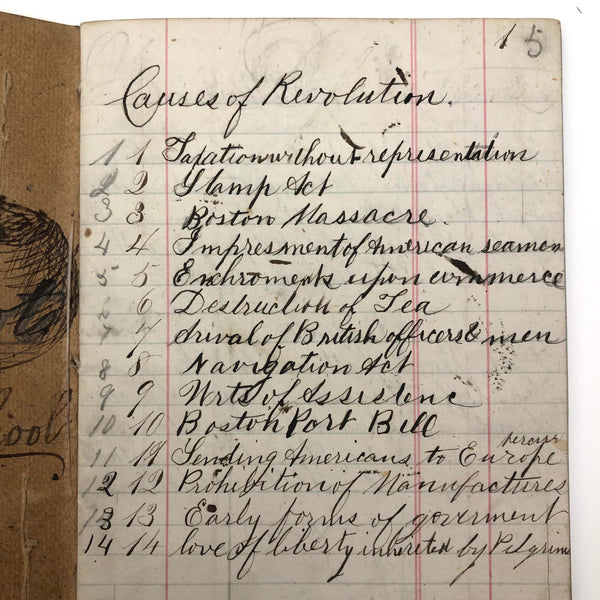 1 5
Causes of Revolution.
1 1 Taxation without representation
2 2 Stamp Act
3 3 Boston Massacre.
4 4 Impresment of American seamen
5 5 Enchroments upon commerce
6 Destruction of Tea
7 7 Arival of British officers & men
8 8 Navigation Act
9 9 Wrts of Assistenc
10 10 Boston Port Bill
11 11 Sending Americans to Europe
12 12 Prohibition of Manufactures
13 13 Early forms of goverment
14 14 love of liberty inherited by Pilgrims
ool